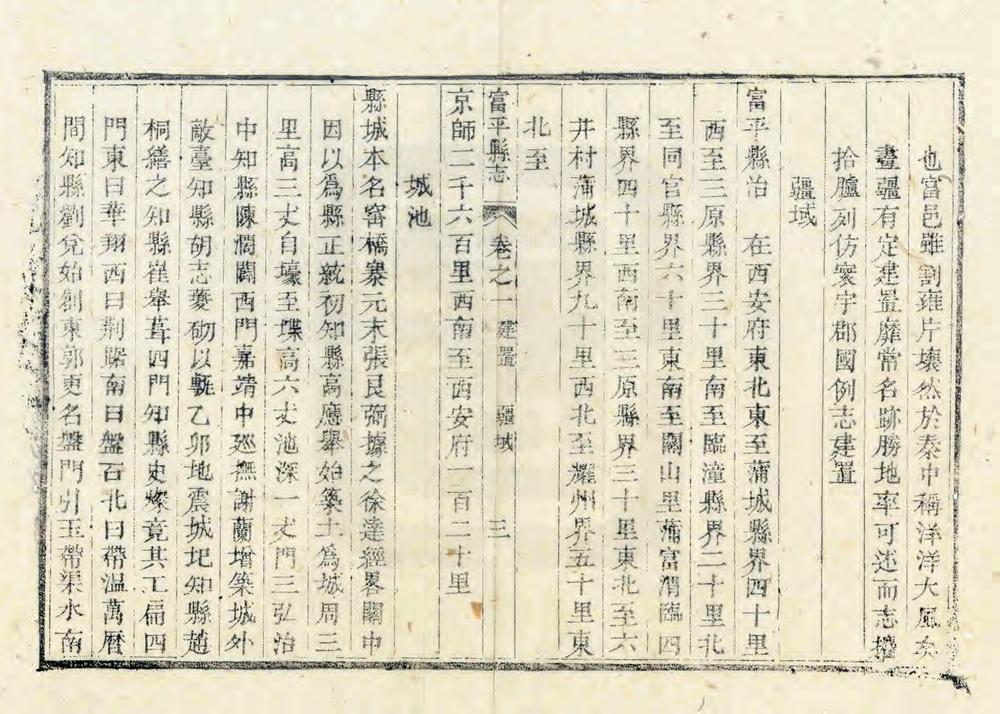 也富邑雖割雍片壤然於秦中稱洋洋大風矣
畫疆有定建置靡常名跡勝地率可述而志攟
拾臚列仿寰宇郡國例志建置
疆域
富平縣治　在西安府東北東至蒲城縣界四十里
西至三原縣界三十里南至臨潼縣界二十里北
至同官縣界六十里東南至關山里蒲富渭臨四
縣界四十里西南至三原縣界三十里東北至六
井村蒲城縣界九十里西北至耀州界五十里東
北至
富平縣志　卷之一　建置　疆域　三
京師二千六百里西南至西安府一百二十里
城池
縣城本名窨橋寨元末張良弼據之徐達經畧關中
因以爲縣正統初知縣高應舉始築土爲城周三
里高三丈自壕至堞高六丈池深一丈門三弘治
中知縣陳濶闢西門嘉靖中廵撫謝蘭增築城外
敵臺知縣胡志夔砌以甎乙卯地震城圯知縣趙
桐繕之知縣崔舉葺四門知縣史燦竟其工扁四
門東曰華翔西曰荆躋南曰盤石北曰帶溫萬曆
間知縣劉兌始創東郭更名盤門引玉帶渠水南